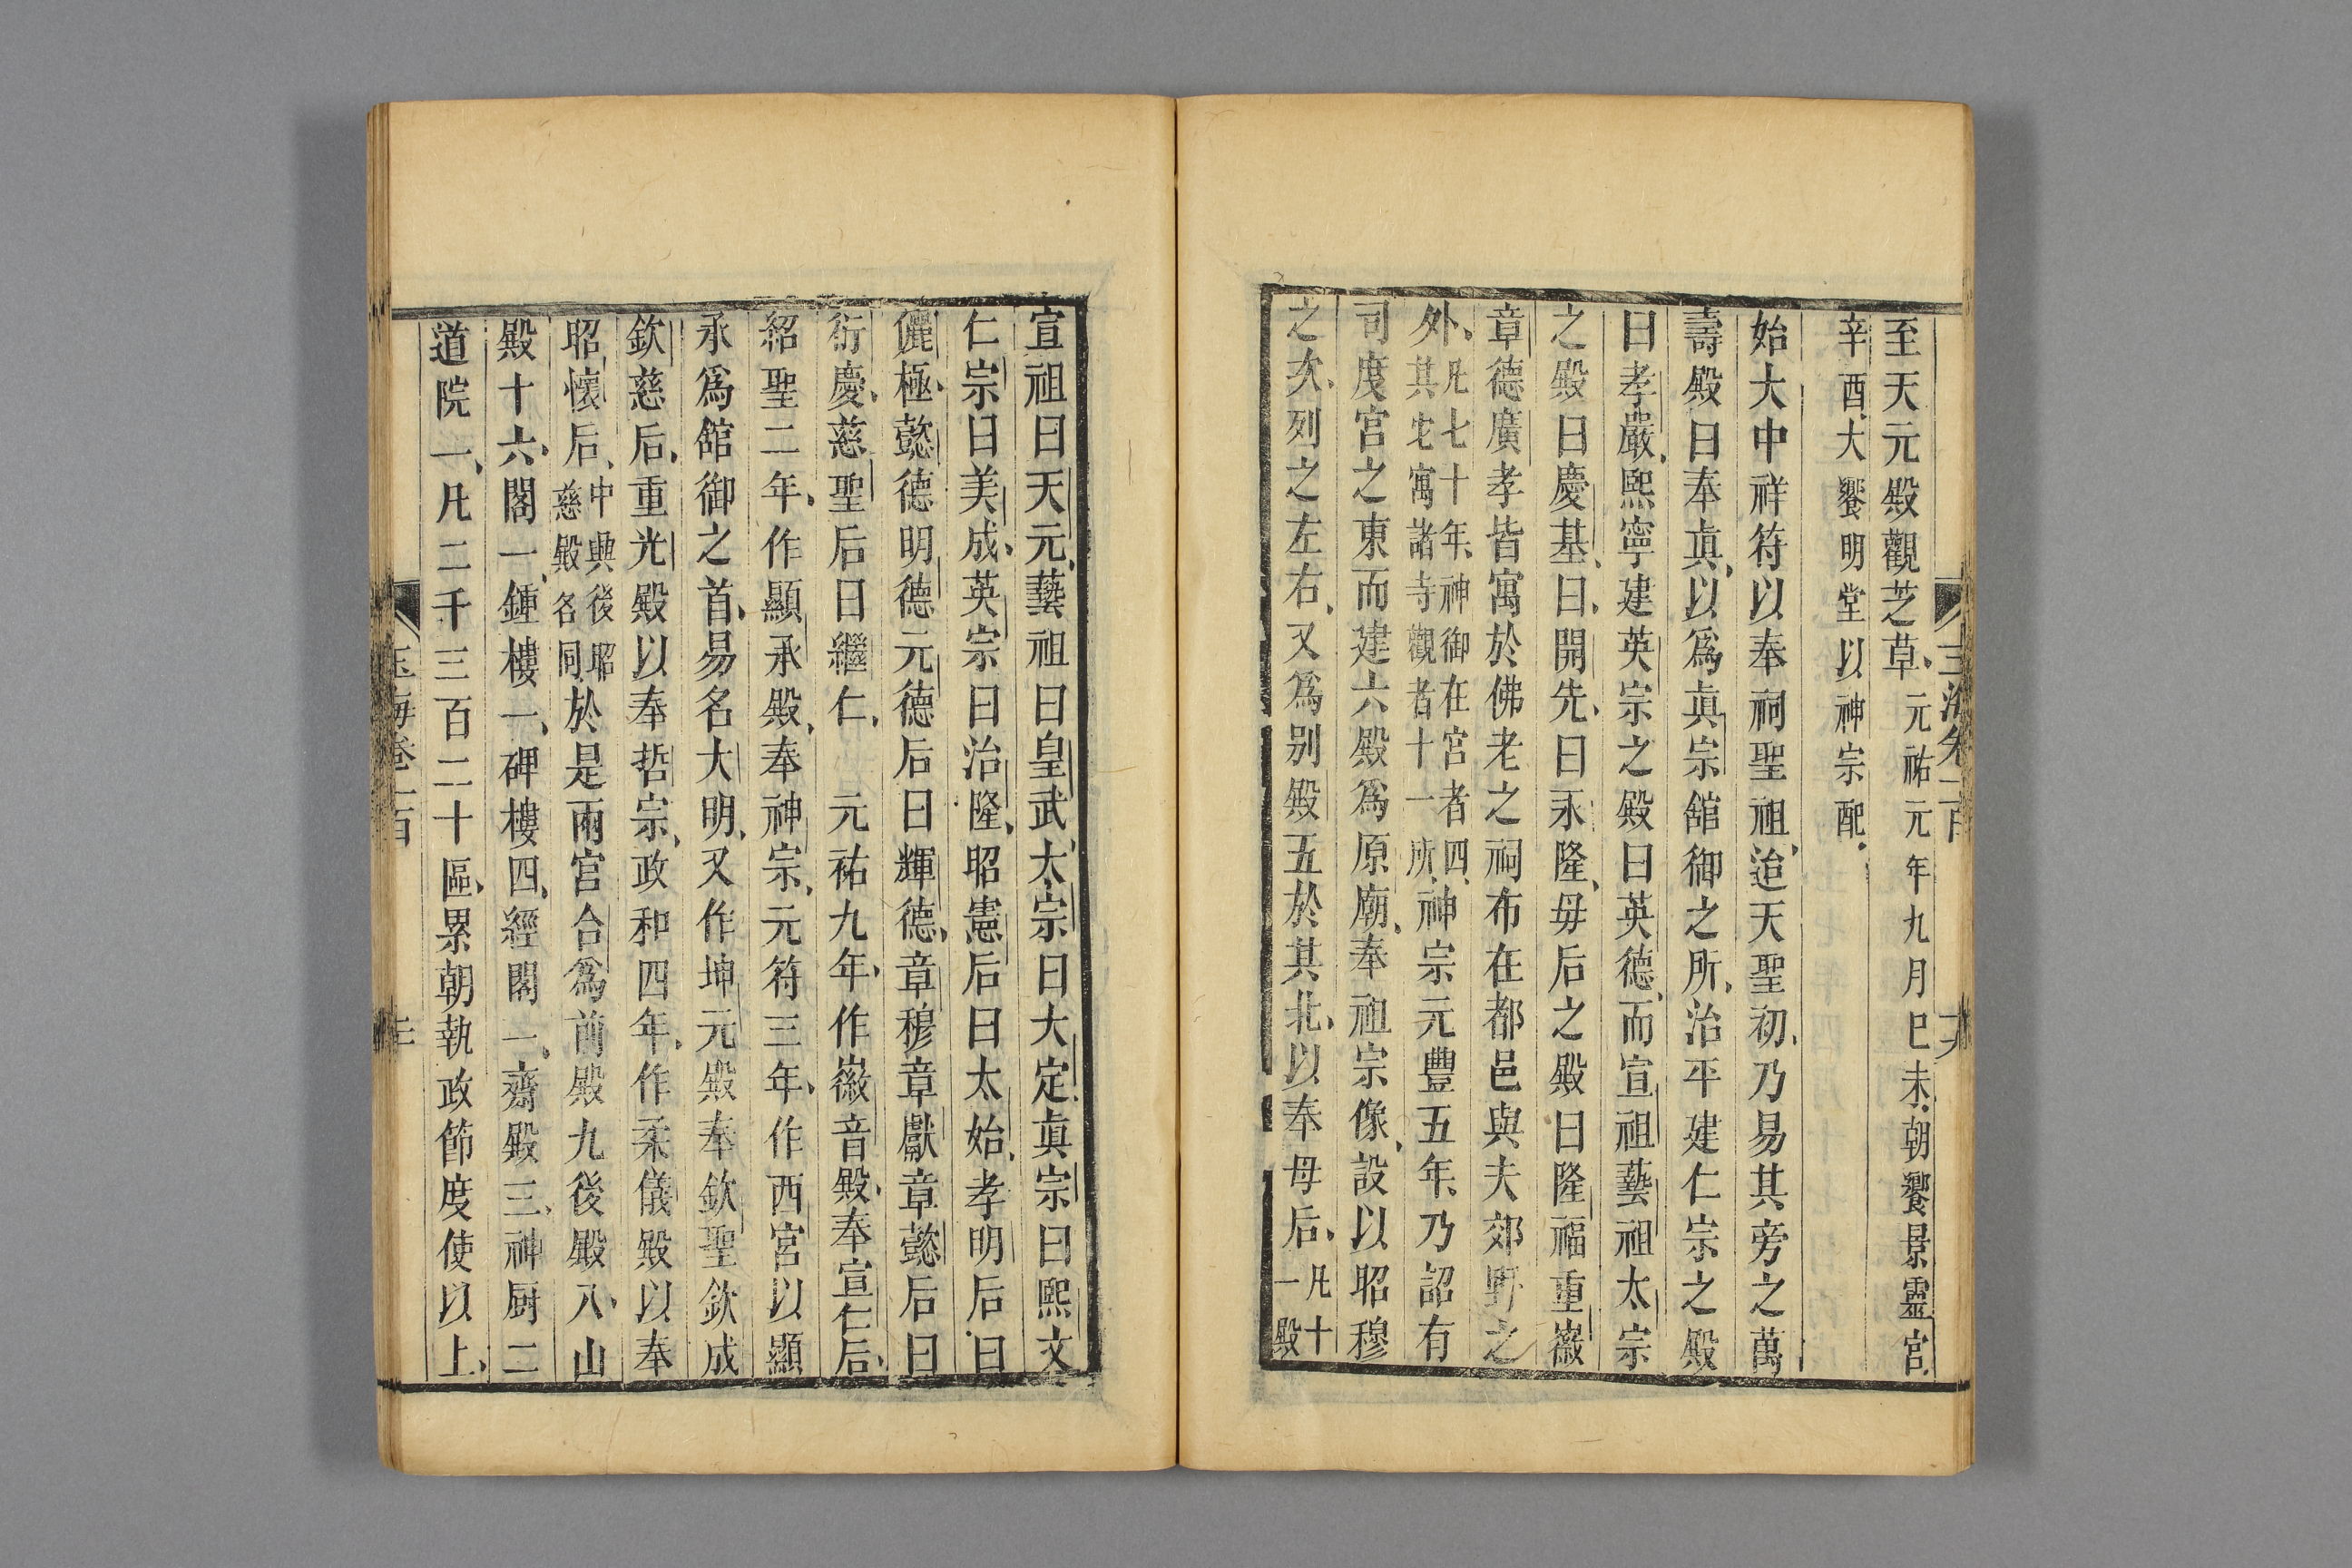 至天元殿觀芝草、元祐元年九月巳未、朝饗景靈宮、
辛酉、大饗明堂以神宗配、
始大中祥符以奉祠聖祖、迨天聖初、乃易其旁之萬
壽殿曰奉眞、以爲眞宗舘御之所、治平建仁宗之殿
曰孝嚴、熙寧建英宗之殿曰英德、而宣祖藝祖太宗
之殿曰慶基、曰、開先、曰永隆、毋后之殿曰隆福重徽
章德廣孝皆寓於佛老之祠布在都邑與夫郊野之
外、凡七十年、神御在宮者四、
其它寓諸寺觀者十一所、神宗元豐五年、乃詔有
司度宮之東而建六殿爲原廟、奉祖宗像、設以昭穆
之次、列之左右、又爲別殿五於其北、以奉母后、凡十
一殿
宣祖曰天元、藝祖曰皇武、太宗曰大定、眞宗曰熙文
仁宗曰美成、英宗曰治隆、昭憲后曰太始、孝明后曰
儷極、懿德明德元德后曰輝德、章穆章獻章懿后曰
衍慶、慈聖后曰繼仁、元祐九年、作徽音殿、奉宣仁后、
紹聖二年、作顯承殿、奉神宗、元符三年、作西宮以顯
承爲舘御之首、易名大明、又作坤元殿奉欽聖欽成
欽慈后、重光殿以奉哲宗、政和四年、作柔儀殿以奉
昭懷后、中興後昭
慈殿名同、於是兩宮合爲前殿九後殿八、山
殿十六、閣一、鍾樓一、碑樓四、經閣一、齋殿三、神厨二
道院一、凡二千三百二十區、累朝執政節度使以上、
玉海卷一百